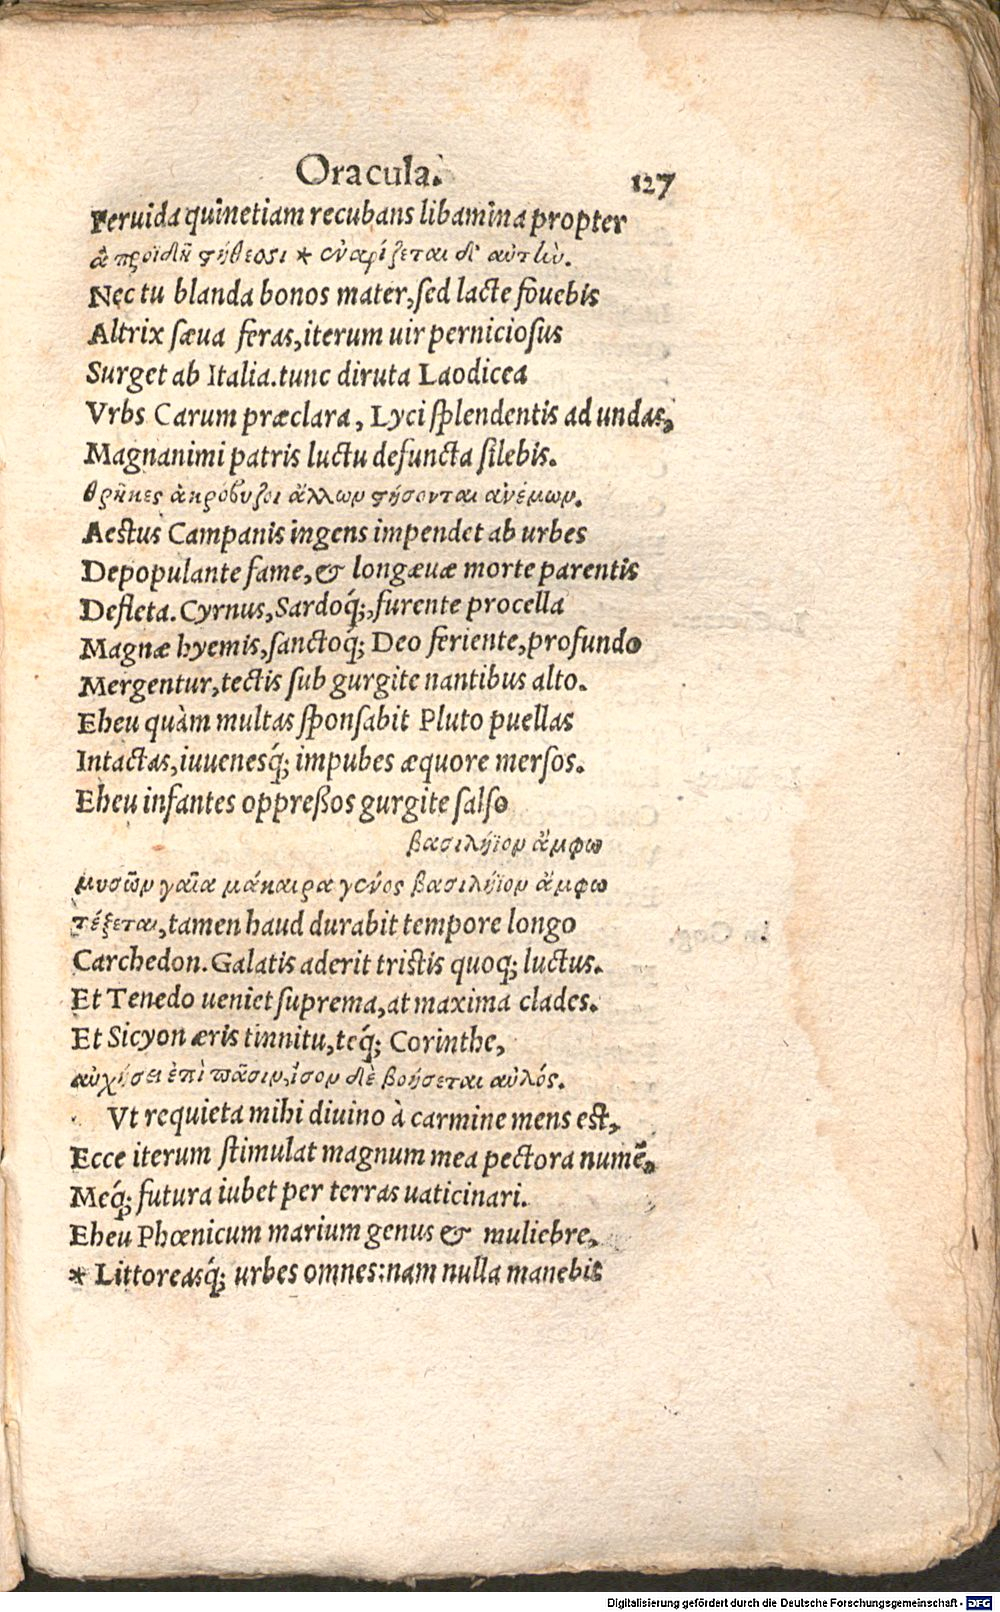 Oracula. 127
Feruida quinetiam recubans libamina propter
ἀ προϊδῆ στήθεσι * ἐναρίζεται δ' αὐτὴν.
Nec tu blanda bonos mater, sed lacte fouebis
Altrix sæua feras, iterum uir perniciosus
Surget ab Italia. tunc diruta Laodicea
Vrbs Carum præclara, Lyci splendentis ad undas,
Magnanimi patris luctu defuncta silebis.
θρῆκες ἀκρόβυζοι ἄλλων στήσονται ἀνέμων.
Aestus Campanis ingens impendet ab urbes
Depopulante fame, & longæuæ morte parentis
Defleta. Cyrnus, Sardoq́;, furente procella
Magnæ hyemis, sanctoq́; Deo feriente, profundo
Mergentur, tectis sub gurgite nantibus alto.
Eheu quàm multas sponsabit Pluto puellas
Intactas, iuuenesq́; impubes æquore mersos.
Eheu infantes oppreßos gurgite salso
βασιλήϊον ἄμφω
μυσῶν γαῖα μάκαιρα γένος βασιλήϊον ἄμφω
τέξεται, tamen haud durabit tempore longo
Carchedon. Galatis aderit tristis quoq; luctus.
Et Tenedo ueniet suprema, at maxima clades.
Et Sicyon æris tinnitu, teq́; Corinthe,
αὐχήσει ἐπὶ πᾶσιν, ἴσον δὲ βοήσεται αὐλός.
Vt requieta mihi diuino à carmine mens est,
Ecce iterum stimulat magnum mea pectora numẽ,
Meq́; futura iubet per terras uaticinari.
Eheu Phœnicum marium genus & muliebre,
* Littoreasq́; urbes omnes: nam nulla manebis
Digitalisierung gefördert durch die Deutsche Forschungsgemeinschaft - DFG